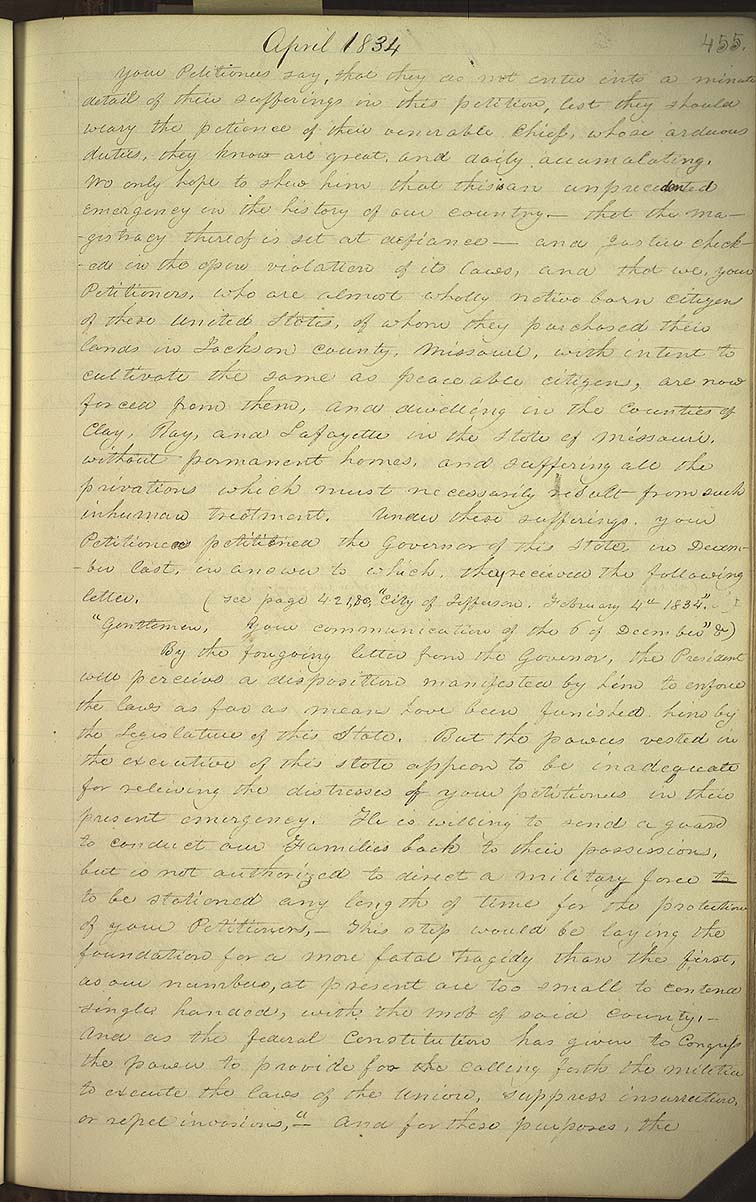 April 1834
455.
your Petitioners say, that they do not enter into a minute
detail of their sufferings in this petition, lest they should
weary the patience of their venerable Chief, whose arduous
duties, they know are great, and daily accumalating.
We only hope to shew him that this is an unprecedented
emergency in the history of our country— that the ma—
-gistracy thereof is set at defiance— and Justice check-
-ed in the open violation of its laws, and that we, your
Petitioners, who are almost wholly native born citizens
of these United States, of whom they purchased their
lands in Jackson county, Missouri, with intent to
cultivate the same as peaceable citizens, are now
forced from them, and dwelling in the Counties of
Clay, Ray, and Lafayette in the State of Missouri,
without permanent homes, and suffering all the
privations which must necessarily result from such
inhuman treatment. Under these sufferings, your
Petitioners petitioned the Governor of this State in Decem-
-ber last, in answer to which, they recieved the following
letter. (see page 421, &c, "City of Jefferson, February 4th 1834".
"Gentlemen, Your communication of the 6 of December" &)
By the foregoing letter from the Govenor, the President
will percieve a disposition manifested by him to enforce
the laws as far as means have been furnished him by
the Legislature of this State. But the powers vested in
the executive of this state appear to be inadequate
for relieving the distresses of your petitioners in their
present emergency. He is willing to send a guard
to conduct our Families back to their possessions,
but is not authorized to direct a military force to
to be stationed any length of time for the protection
of your Petitioners,— This step would be laying the
foundation for a more fatal tragidy than the first,
as our numbers, at present are too small to contend
single handed, with the mob of said county.—
And as the federal Constitution has given to Congress
the power to provide for the calling forth the militia
to execute the laws of the Union, suppress insurrection,
or repel invasions,"— And for these purposes, the